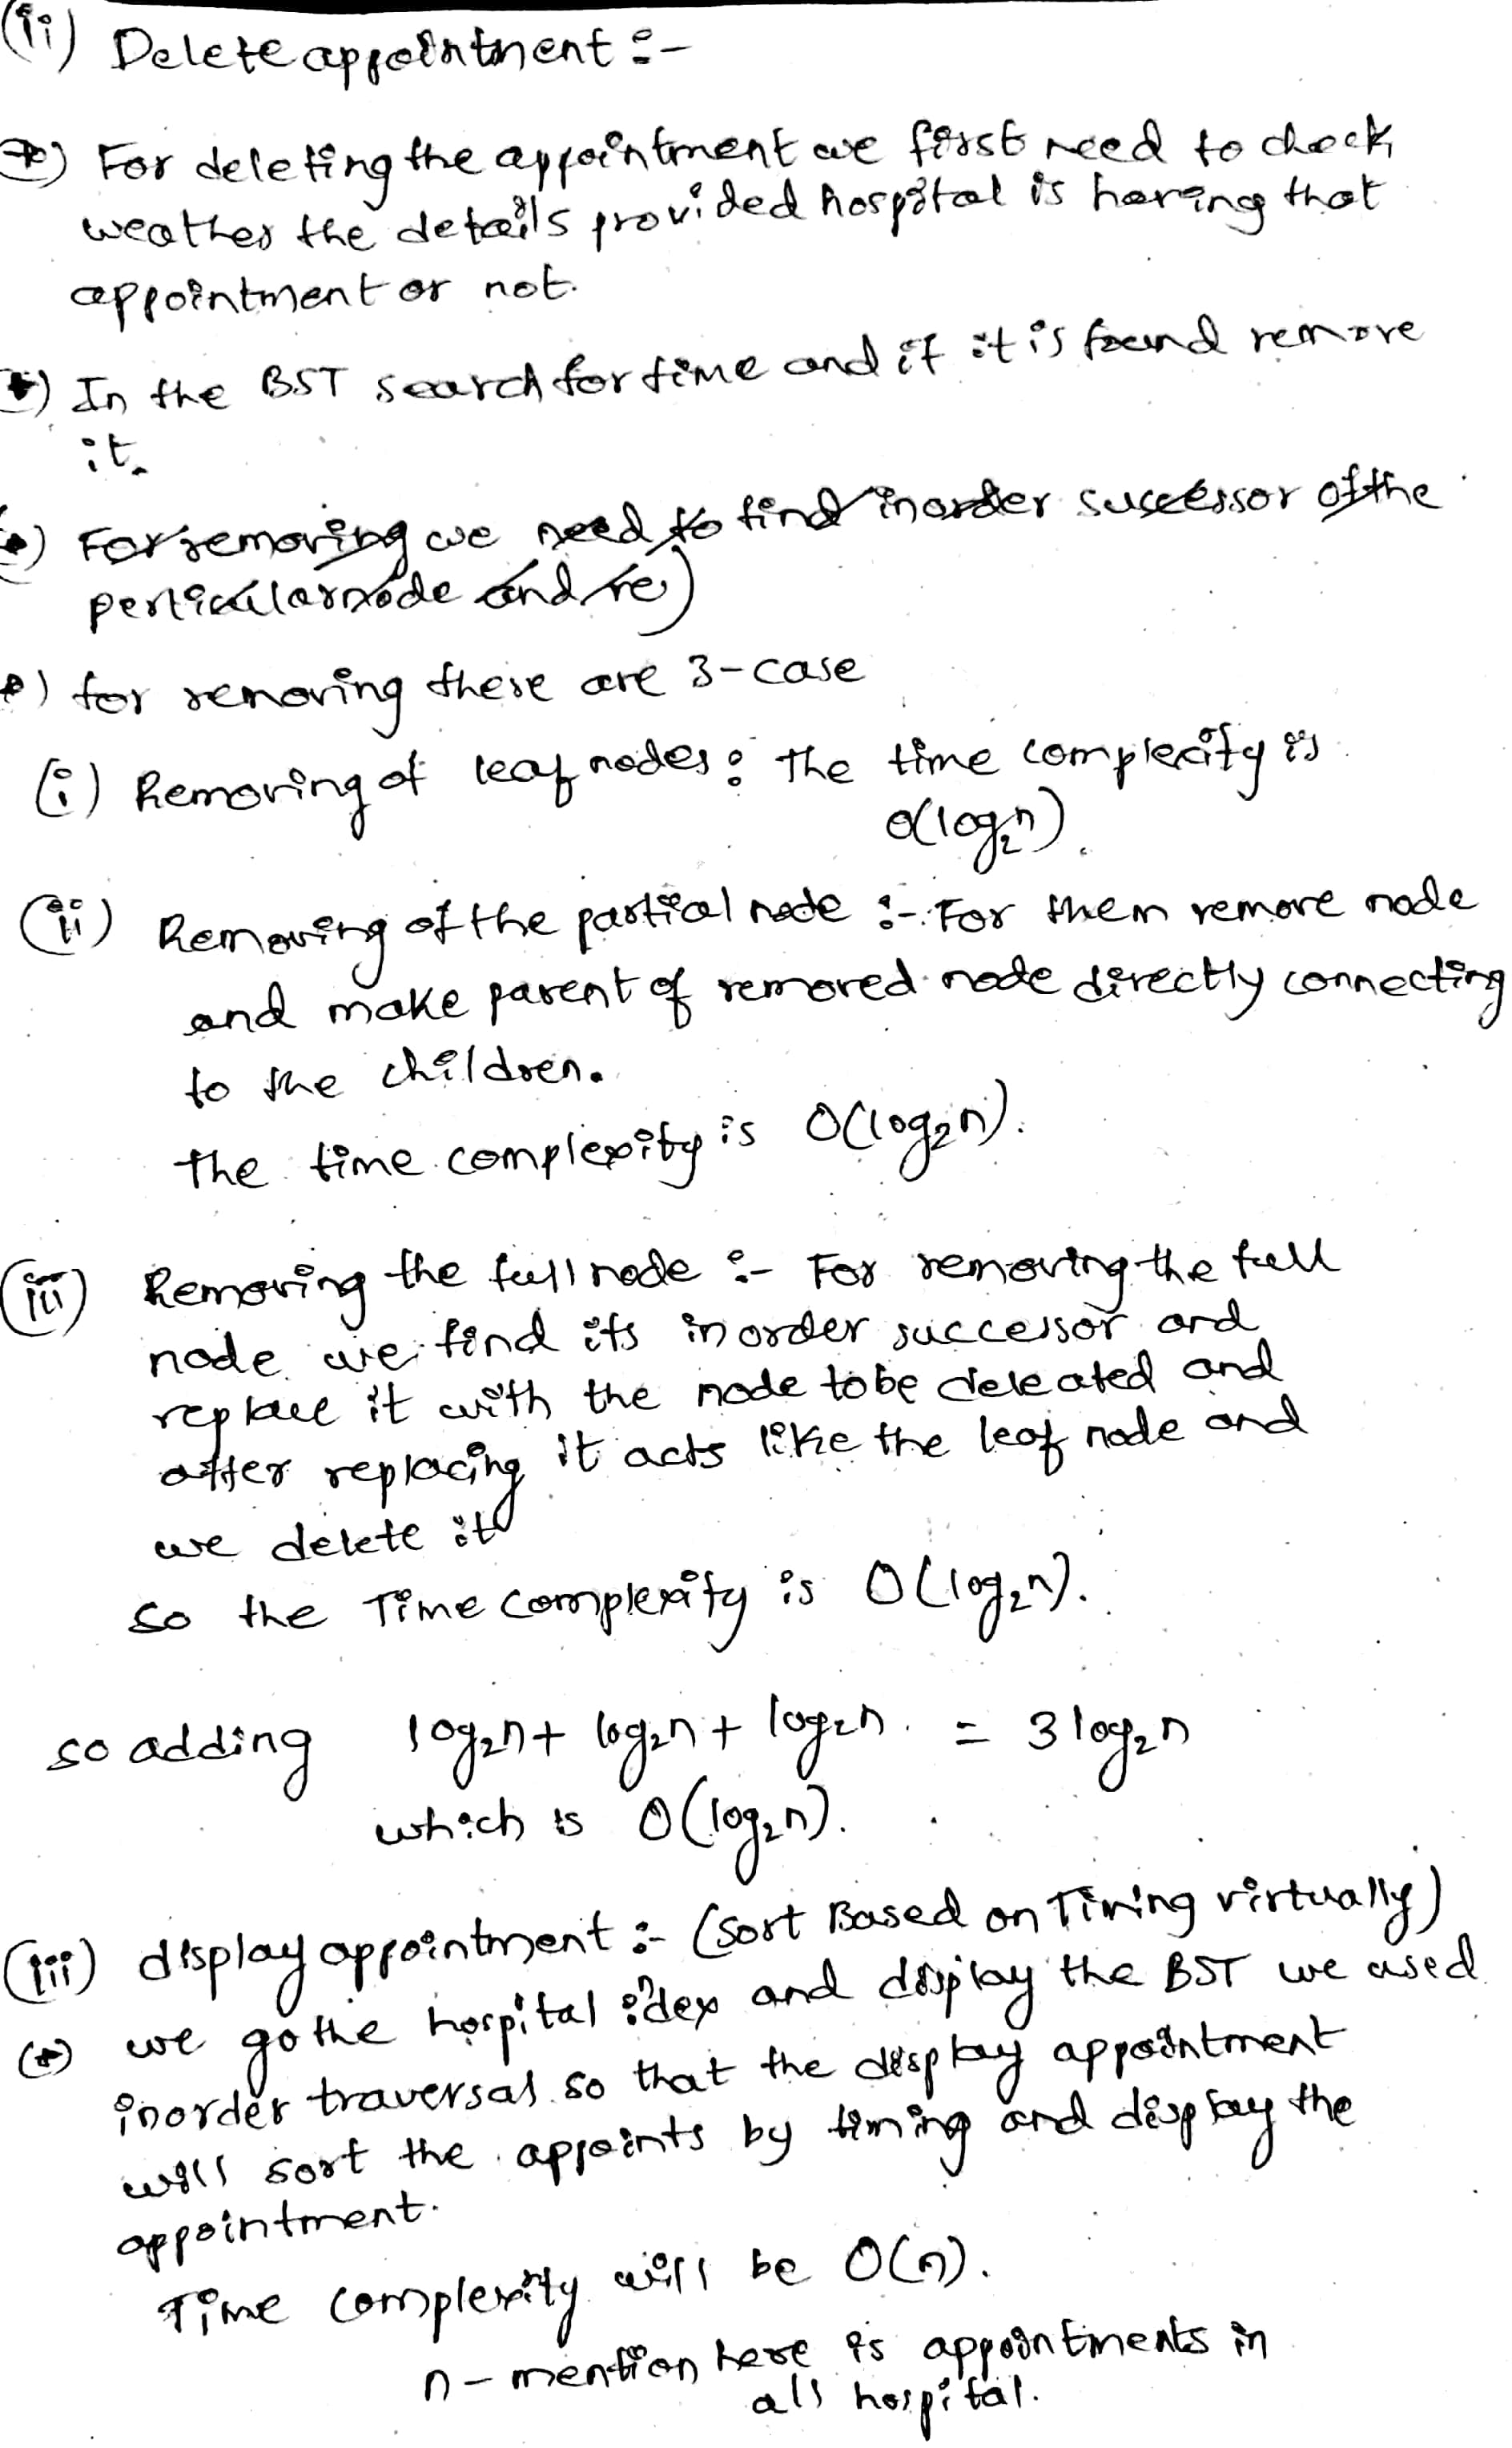 (ii) Delete appointment :-
*) For deleting the appointment we first need to check
weather the details provided hospital is having that
appointment or not.
*) In the BST search for time and if it is found remove
it.
*) For removing we need to find inorder successor of the
perticular node and re)
*) for removing there are 3-case
(i) Removing of leaf nodes : The time complexity is
O(log₂n).
(ii) Removing of the partial node :- For them remove node
and make parent of removed node directly connecting
to the children.
The time complexity is O(log₂n).
(iii) Removing the full node :- For removing the full
node we find its inorder successor and
replace it with the node to be deleated and
after replacing it acts like the leaf node and
we delete it
so the Time complexity is O(log₂n).
so adding log₂n + log₂n + log₂n = 3 log₂n
which is O(log₂n).
(iii) display appointment :- (sort Based on Timing virtually)
(*) we go the hospital idex and display the BST we used
inorder traversal so that the display appointment
will sort the appoints by timing and display the
appointment.
Time complexity will be O(n).
n - mention here is appointments in
all hospital.